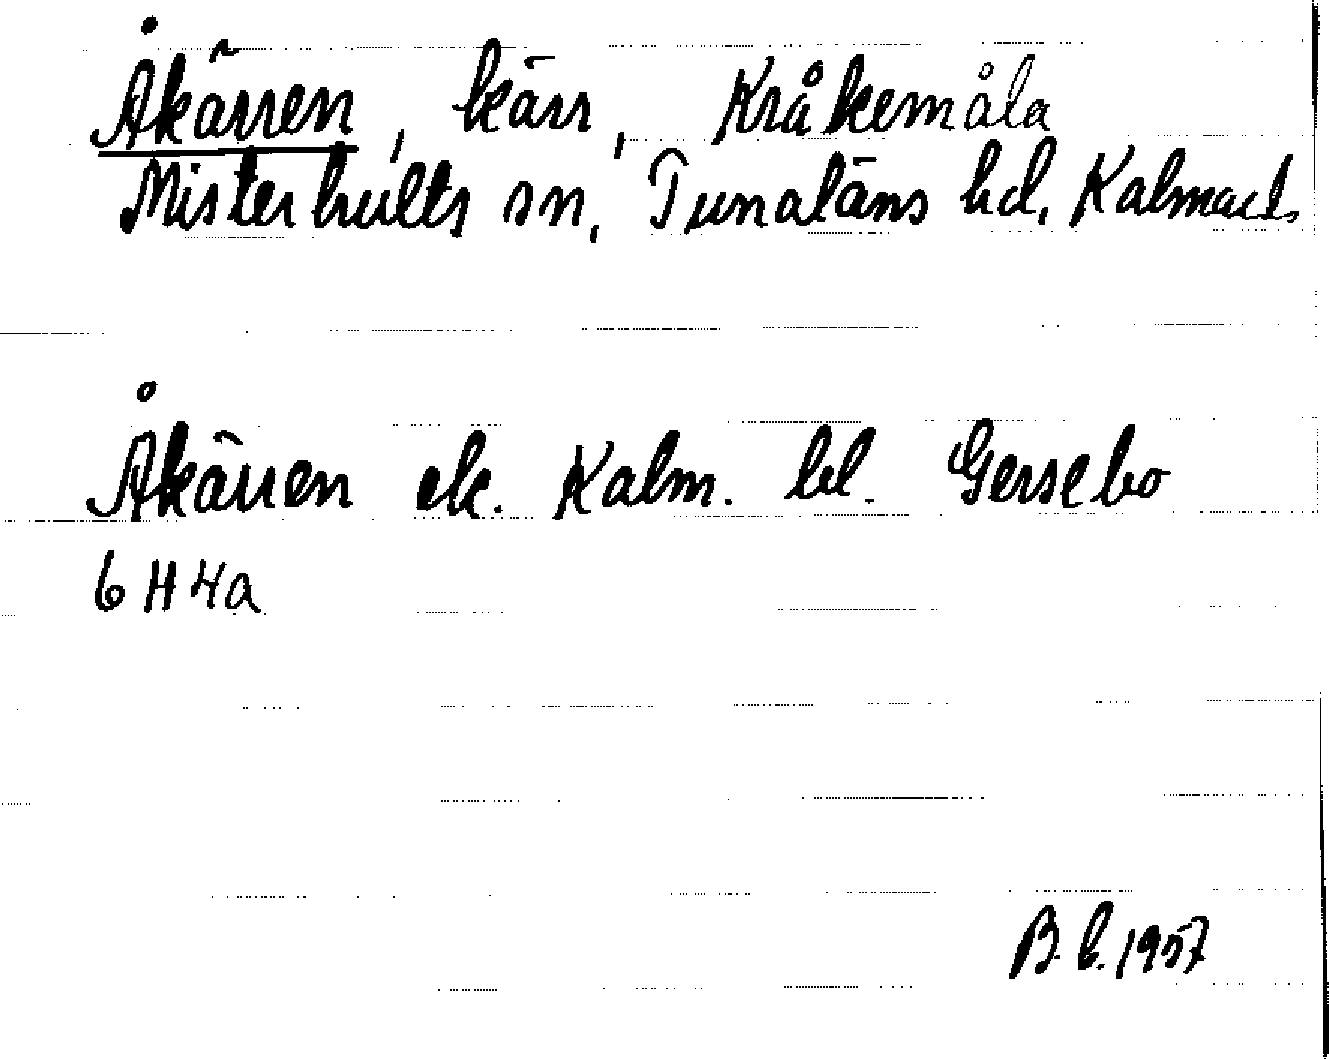 Åkärren, kärr, Kråkemåla
Misterhults sn, Tunaläns hd, Kalmar l.
Åkärren ek. Kalm. bl. Gersebo
6H4a
B.b. 1957